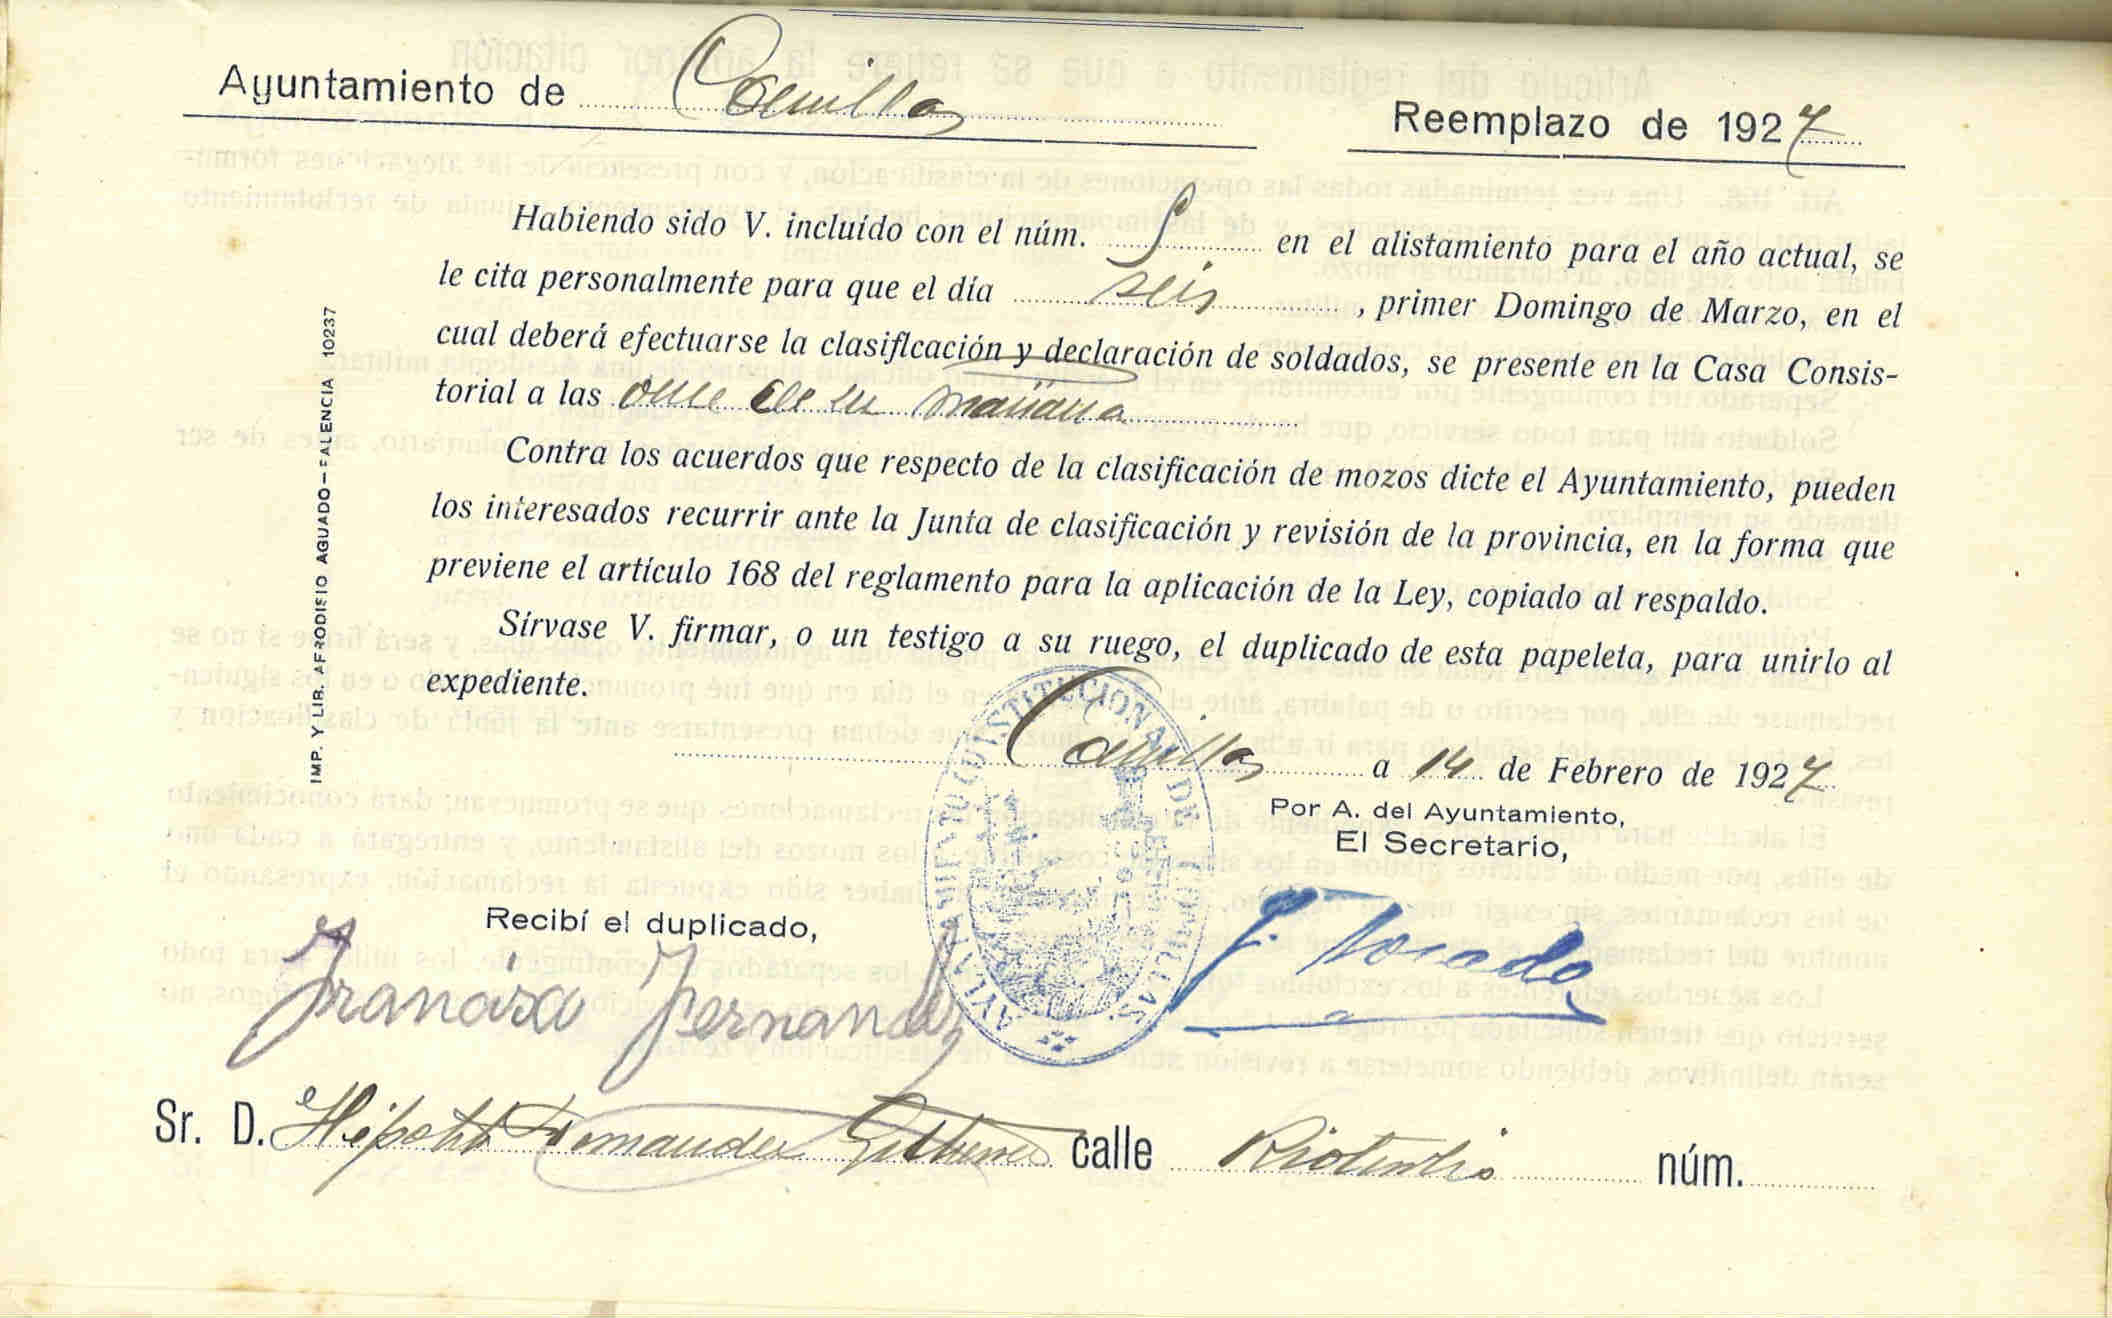 Ayuntamiento de Canillas
Reemplazo de 1927
Habiendo sido V. incluído con el núm. en el alistamiento para el año actual, se
le cita personalmente para que el día seis, primer Domingo de Marzo, en el
cual deberá efectuarse la clasificación y declaración de soldados, se presente en la Casa Consis-
torial a las once de la mañana
Contra los acuerdos que respecto de la clasificación de mozos dicte el Ayuntamiento, pueden
los interesados recurrir ante la Junta de clasificación y revisión de la provincia, en la forma que
previene el artículo 168 del reglamento para la aplicación de la Ley, copiado al respaldo.
Sírvase V. firmar, o un testigo a su ruego, el duplicado de esta papeleta, para unirlo al
expediente.
Canillas a 14 de Febrero de 1927.
Por A. del Ayuntamiento,
El Secretario,
Recibí el duplicado,
Francisco Fernandez
AYUNTAMIENTO CONSTITUCIONAL DE CANILLAS
Sr. D. Hipolito Fernandez Gutierrez calle núm.
IMP. Y LIB. AFRODISIO AGUADO-PALENCIA 10237